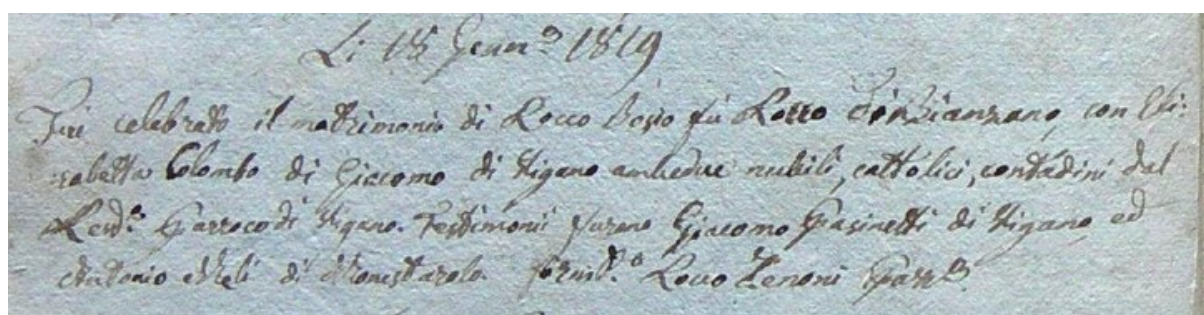 Li 18 Genn.o 1819
Fu celebrato il matrimonio di Rocco Bosio fù Rocco di Bianzano, con Eli:
sabetta Colombo di Giacomo di Vigano ambedue nubili, cattolici, contadini dal
Revd.o Parroco di Vigano. Testimonii furono Giacomo Pasinetti di Vigano, ed
Antonio Meli di Monestarolo. Rocco Zenoni Parr.o